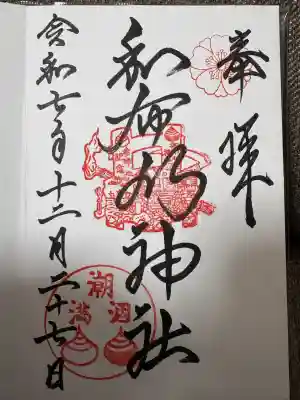 奉拝
和布刈神社
令和七年十二月二十七日
潮
涸
満